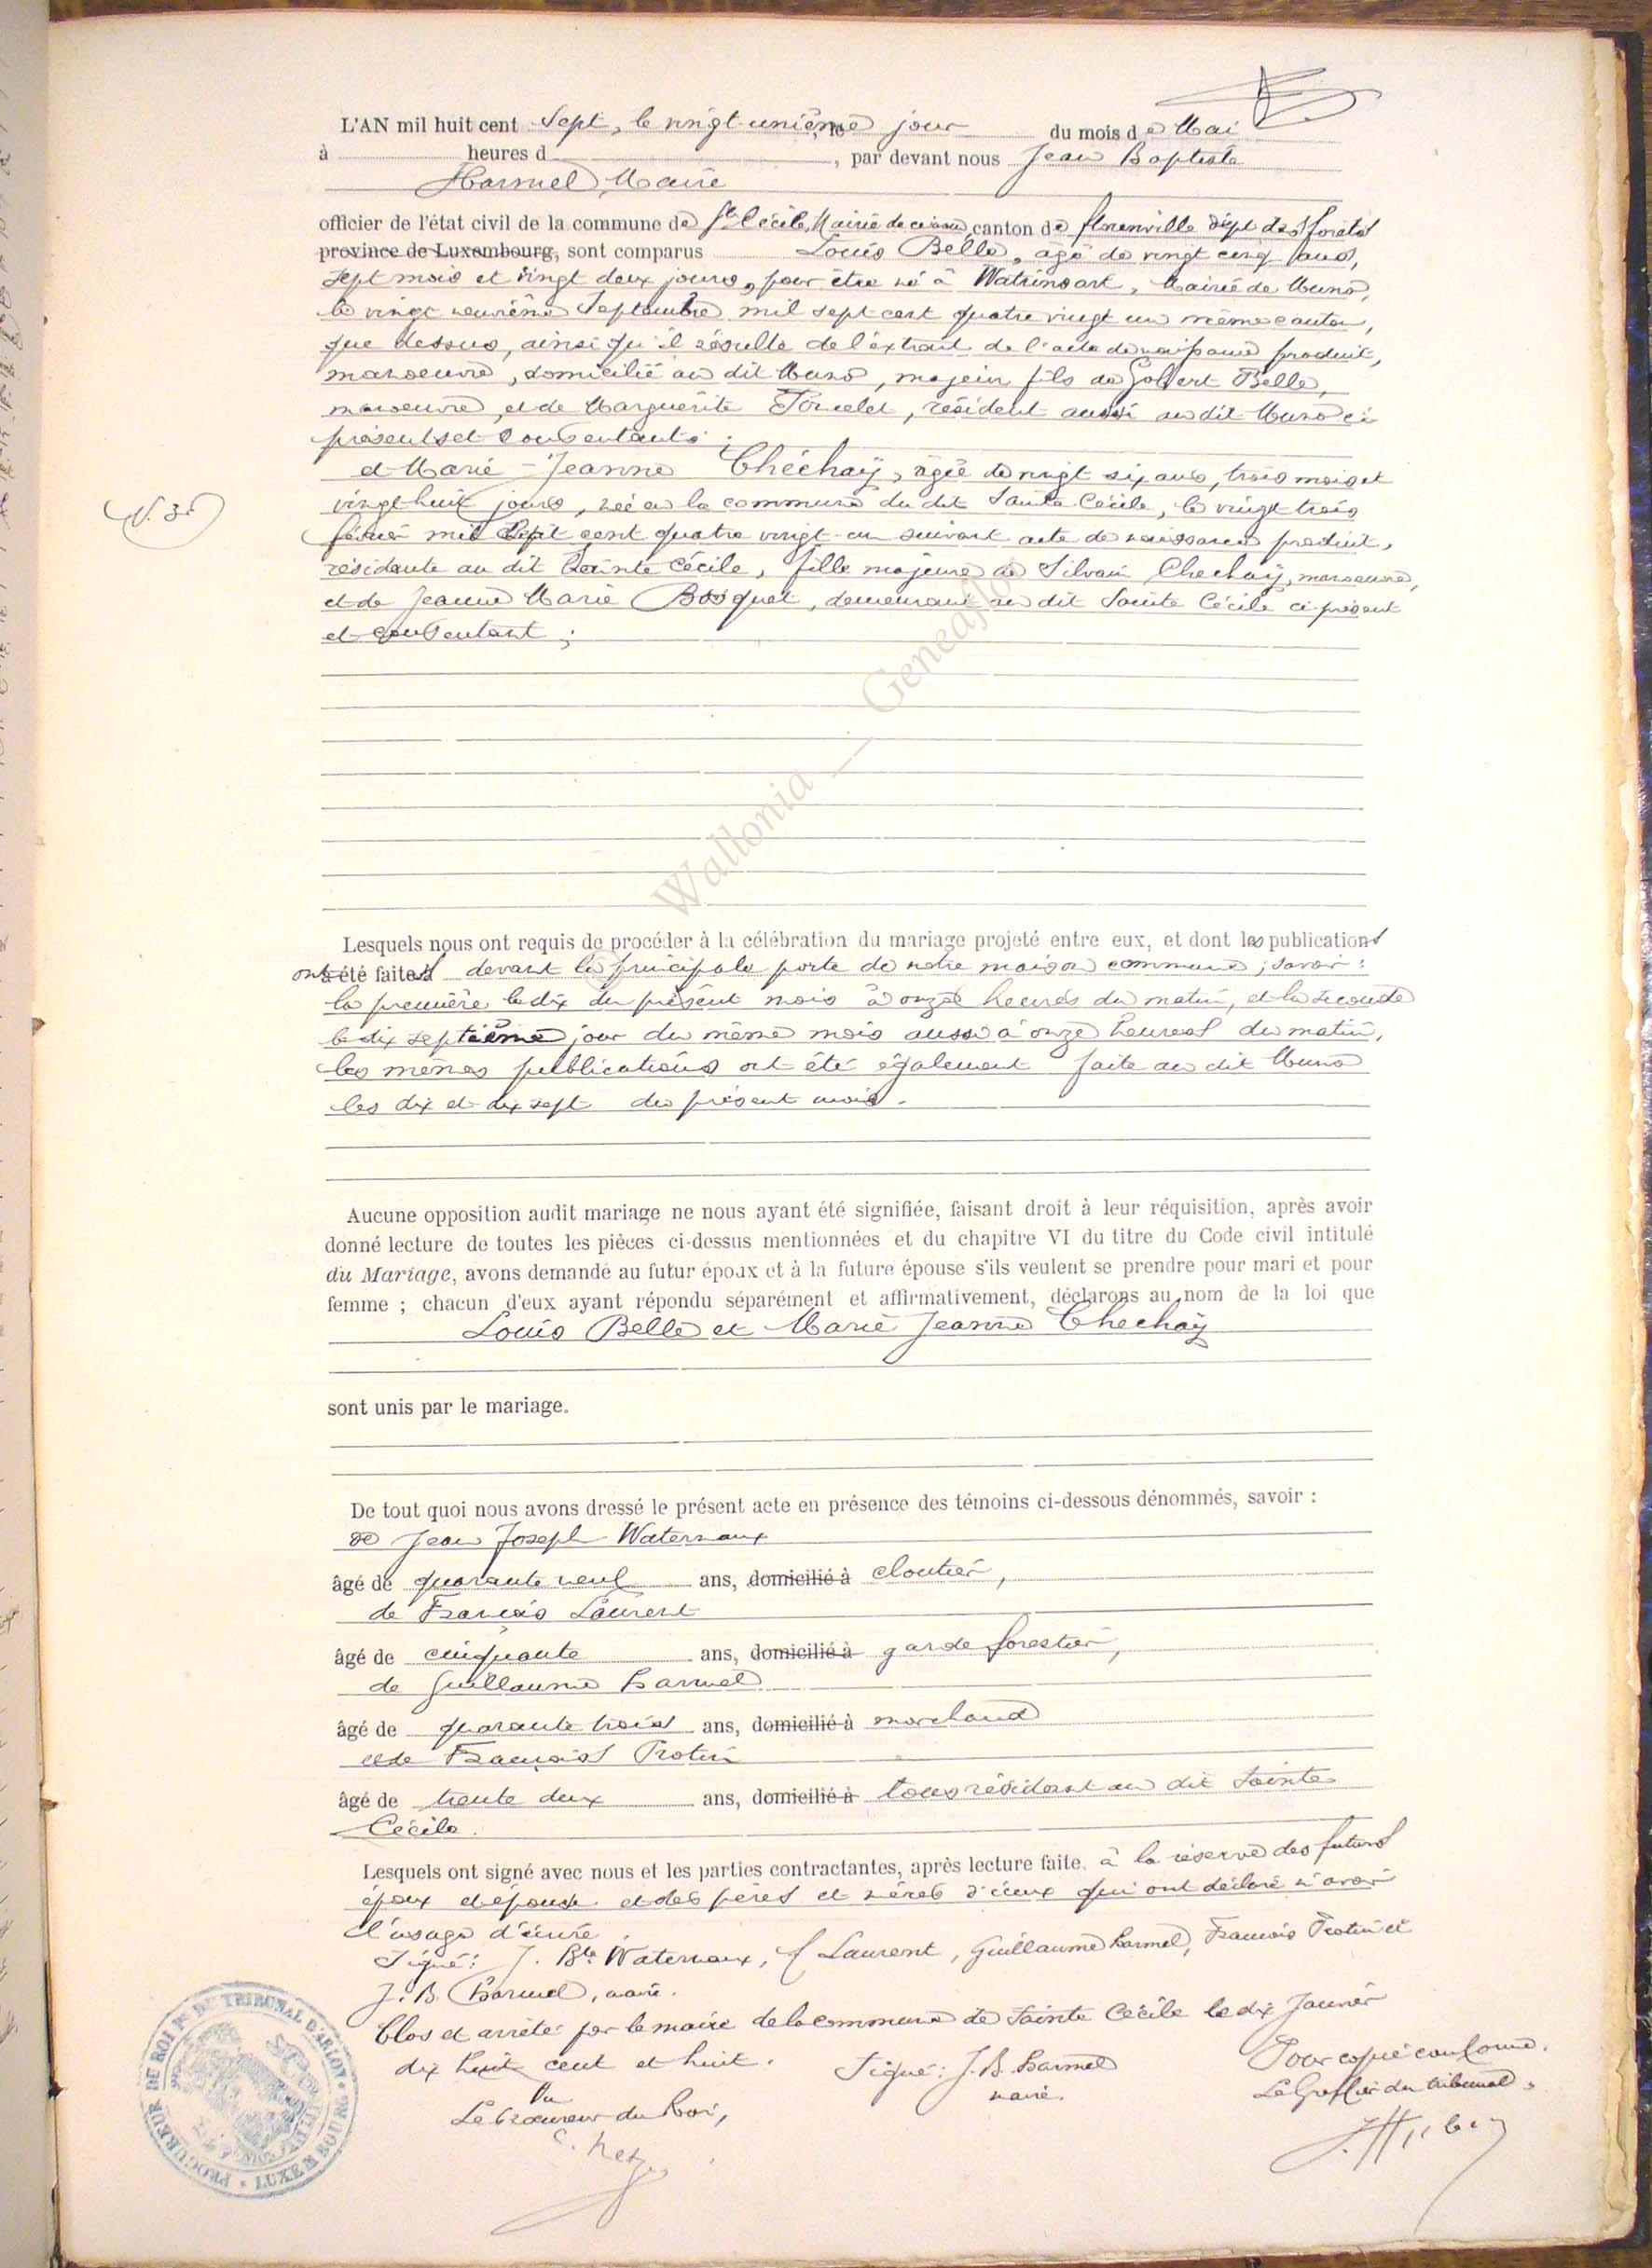 L'AN mil huit cent Sept, le vingt unième jour du mois de Mai
à heures d , par devant nous Jean Baptiste
Harmel Maire
officier de l'état civil de la commune de Ste Cécile, Mairie de canton de florenville dépt des forêts
province de Luxembourg, sont comparus Louis Belle, âgé de vingt cinq ans,
sept mois et vingt deux jours, pour être né à Watrinsart, Mairie de Muno,
le vingt neuvième Septembre mil sept cent quatre vingt un même canton,
que dessus, ainsi qu'il résulte de l'extrait de l'acte de naissance produit,
manoeuvre, domicilié au dit Muno, majeur fils de Gobert Belle,
manoeuvre, et de Marguerite résident aussi au dit Muno ci
présents et consentants ;
et Marie-Jeanne Chéchaÿ, âgée de vingt six ans, trois mois et
vingt huit jours, née en la commune du dit Sainte Cécile, le vingt trois
février mil sept cent quatre vingt-un suivant acte de naissance produit,
résidante au dit Sainte Cécile, fille majeure de Silvain Chechaÿ, manoeuvre,
et de Jeanne Marie Bosquet, demeurant au dit Sainte Cécile ci-présent
et consentant ;
N. 3.
Wallonia — Geneanet
Lesquels nous ont requis de procéder à la célébration du mariage projeté entre eux, et dont les publications
ont été faites devant la principale porte de notre maison commune ; savoir :
la première le dix du présent mois à onze heures du matin, et la seconde
le dix septième jour du même mois aussi à onze heures du matin,
les mêmes publications ont été également faite au dit Muno
les dix et dix sept du présent mois.
Aucune opposition audit mariage ne nous ayant été signifiée, faisant droit à leur réquisition, après avoir
donné lecture de toutes les pièces ci-dessus mentionnées et du chapitre VI du titre du Code civil intitulé
du Mariage, avons demandé au futur époux et à la future épouse s'ils veulent se prendre pour mari et pour
femme ; chacun d'eux ayant répondu séparément et affirmativement, déclarons au nom de la loi que
Louis Belle et Marie Jeanne Chechaÿ
sont unis par le mariage.
De tout quoi nous avons dressé le présent acte en présence des témoins ci-dessous dénommés, savoir :
de Jean Joseph Waternaux
âgé de quarante neuf ans, domicilié à cloutier,
de François Laurent
âgé de cinquante ans, domicilié à garde forestier,
de Guillaume Harmel
âgé de quarante trois ans, domicilié à marchand
et de François Protin
âgé de trente deux ans, domicilié à tous résidant au dit Sainte
Cécile.
Lesquels ont signé avec nous et les parties contractantes, après lecture faite. à la réserve des futurs
époux et épouse et des pères et mères d'iceux qui ont déclaré n'avoir
l'usage d'écrire
Signé: J. Bte Waternaux, f Laurent, Guillaume Harmel, François Protin et
J. B. Harmel, maire.
Clos et arrêté par le maire de la commune de Sainte Cécile le dix Janvier
dix huit cent et huit. Signé: J. B. Harmel
maire.
Pour copie conforme.
Le Greffier du tribunal,
Vu
Le Procureur du Roi,
PROCUREUR DE ROI PR DU TRIBUNAL D'ARLON
LUXEMBOURG